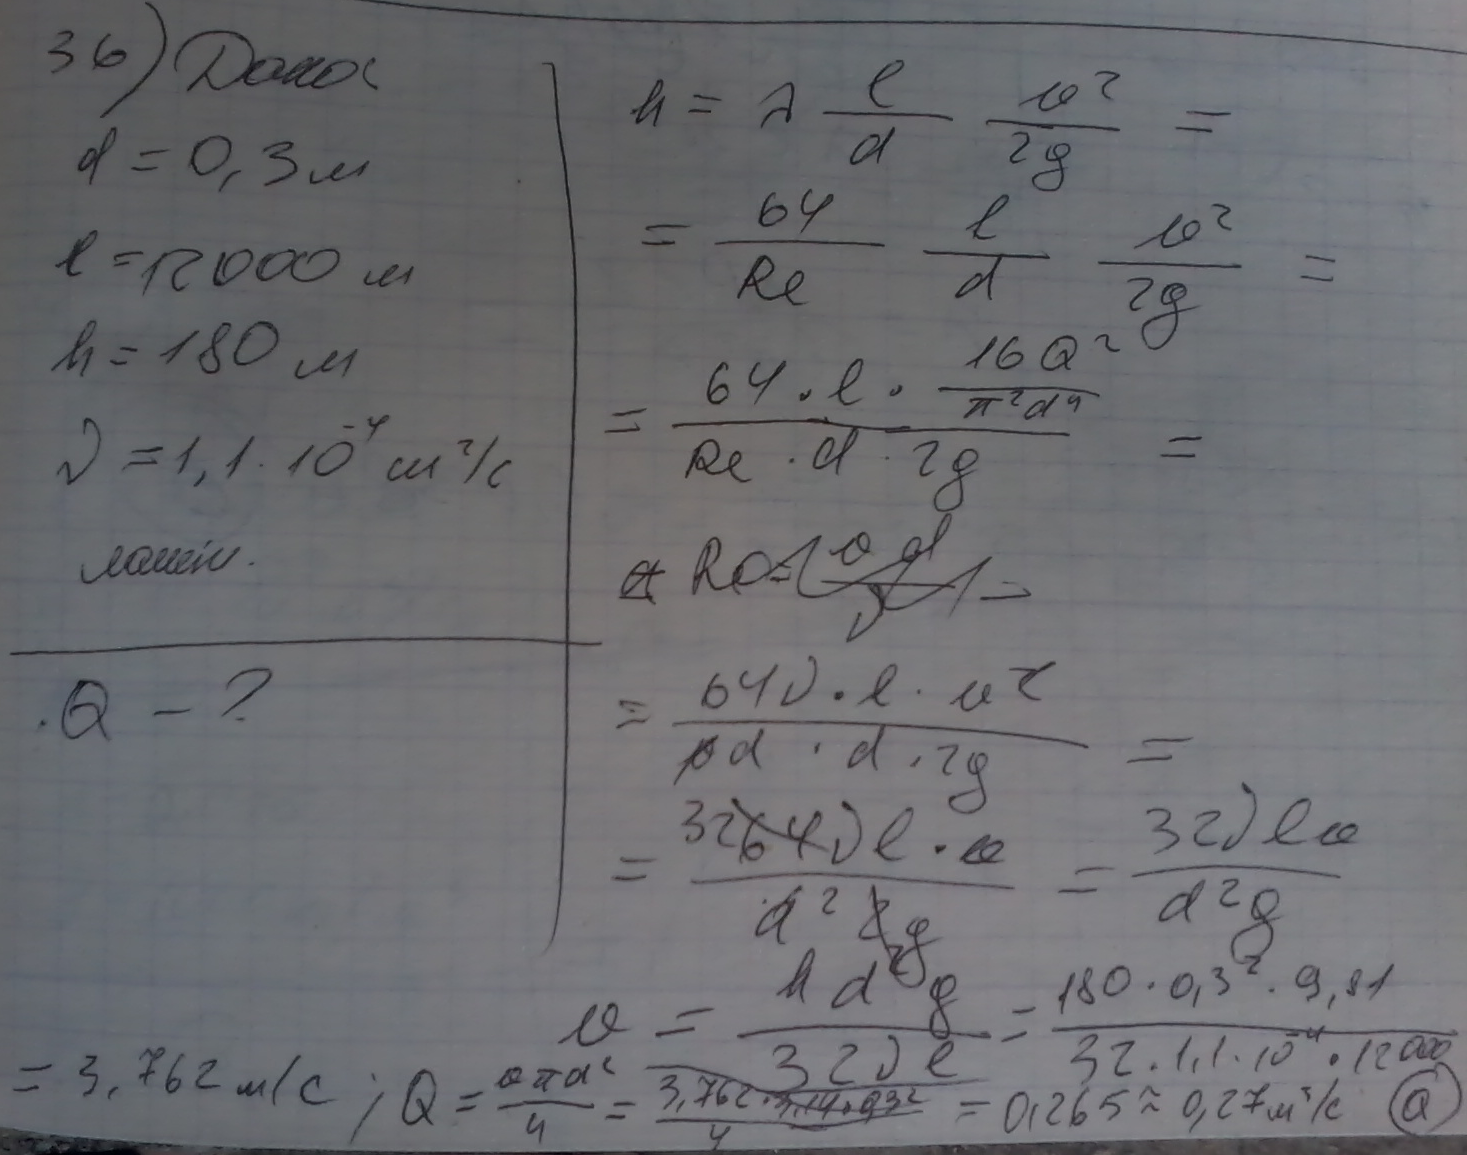 36)
d = 0,3 м
l = 12000 м
h = 180 м
ν = 1,1 · 10⁻⁴ м²/с
Q – ?
h = λ l/d v²/2g =
= 64/Re l/d v²/2g =
= (64 · l · 16Q²/π²d⁴)/(Re · d · 2g) =
= (64ν · l · v²)/(vd · d · 2g) =
= (32 64νl · v)/(d² 2g) = 32νlv/d²g
v = hd²g/32νl = (180 · 0,3² · 9,81)/(32 · 1,1 · 10⁻⁴ · 12000)
= 3,762 м/с ; Q = vπd²/4 = (3,762 · 3,14 · 0,3²)/4 = 0,265 ≈ 0,27 м³/с